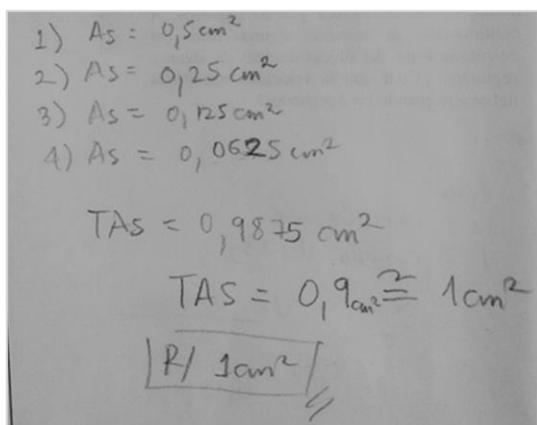 1) As = 0,5 cm²
2) As = 0,25 cm²
3) As = 0,125 cm²
4) As = 0,0625 cm²
TAs = 0,9875 cm²
TAS = 0,9 cm² ≅ 1 cm²
R/ 1cm²